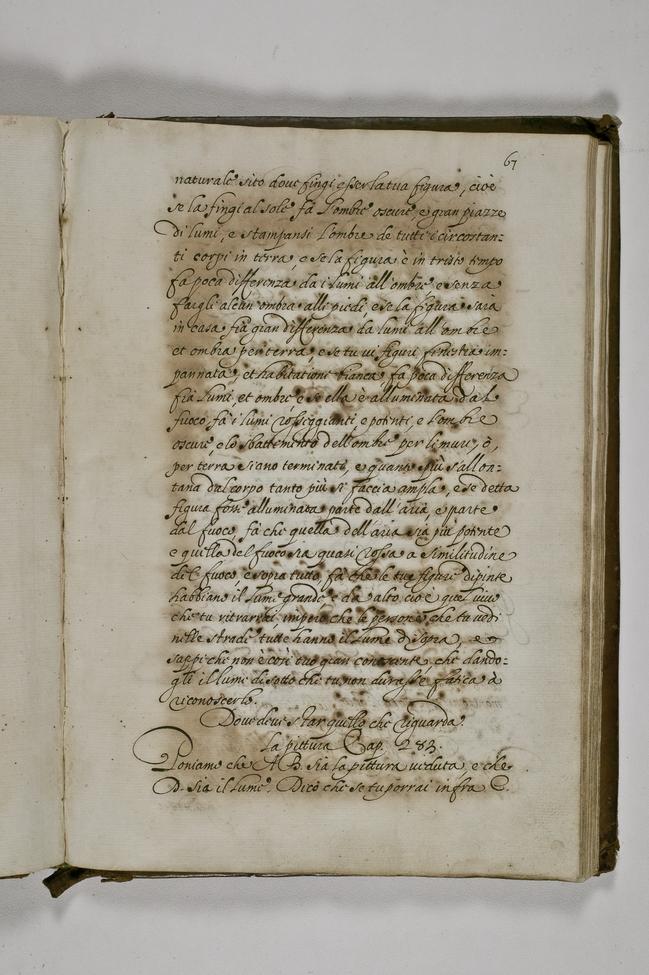 67
naturale sito doue fingi esser la tua figura, cioè
se la fingi al sole fà l'ombre oscure, e gran piazze
di lumi, e stampansi l'ombre de tutti i circostan=
ti corpi in terra, e se la figura è in tristo tempo
fa poca differenza da i lumi all'ombre e senza
fargli alcun ombra alli piedi e se la figura sarà
in casa fià gran differenza da lumi all'ombre
et ombra per terra, e se tu ui figuri finestra im=
pannata, et habitatione bianca, fa poca differenza
frà lumi, et ombre e se ella è alluminata dal
fuoco, fà i lumi rosseggianti, e potenti, e l'ombre
oscure, e lo sbattimento dell'ombre per li muri, ò,
per terra siano terminate, e quanto più s'allon=
tana dal corpo tanto più si faccia ampla, e se detta
figura fosse alluminata parte dall'aria, e parte
dal fuoco, fà che quella dell'aria sia più potente
e quella del fuoco sia quasi rossa a similitudine
del fuoco, e sopra tutto, fà che le tue figure dipinte
habbiano il lume grande, e da alto, cioè quel uiuo
che tu ritrarrai, imperò che le persone, che tu uedi
nelle strade tutte hanno il lume di sopra, e
sappi che non è così tuo gran conoscente, che dando=
gli il lume di sotto che tu non durassi fatica à
riconoscerlo.
Doue deue star quello che risguarda
la pittura Cap. 283.
Poniamo che A B. sia la pittura ueduta e che
D. sia il lume. Dico che se tu porrai infra C.